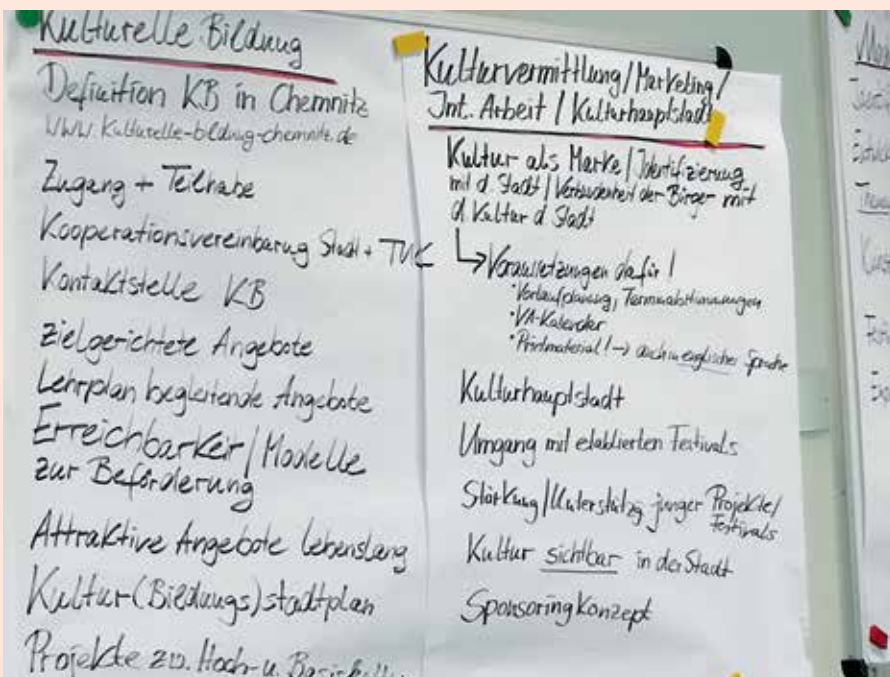 Kulturelle Bildung
Definition KB in Chemnitz
www.kulturelle-bildung-chemnitz.de
Zugang + Teilhabe
Kooperationsvereinbarung Stadt + TVK
Kontaktstelle KB
Zielgerichtete Angebote
Lehrplan begleitende Angebote
Erreichbarkeit / Modelle
zur Beförderung
Attraktive Angebote lebenslang
Kultur(Bildungs)stadtplan
Projekte zw. Hoch- u.
Kulturvermittlung / Marketing /
Int. Arbeit / Kulturhauptstadt
Kultur als Marke / Identifizierung
mit d. Stadt / Verbundenheit der Bürger mit
d. Kultur d. Stadt
↳ Voraussetzungen dafür!
• Vorlaufplanung, Terminabstimmungen
• VA-Kalender
• Printmaterial! → auch in englischer Sprache
Kulturhauptstadt
Umgang mit etablierten Festivals
Stärkung / Unterstützg junger Projekte /
Festivals
Kultur sichtbar in der Stadt
Sponsoringkonzept